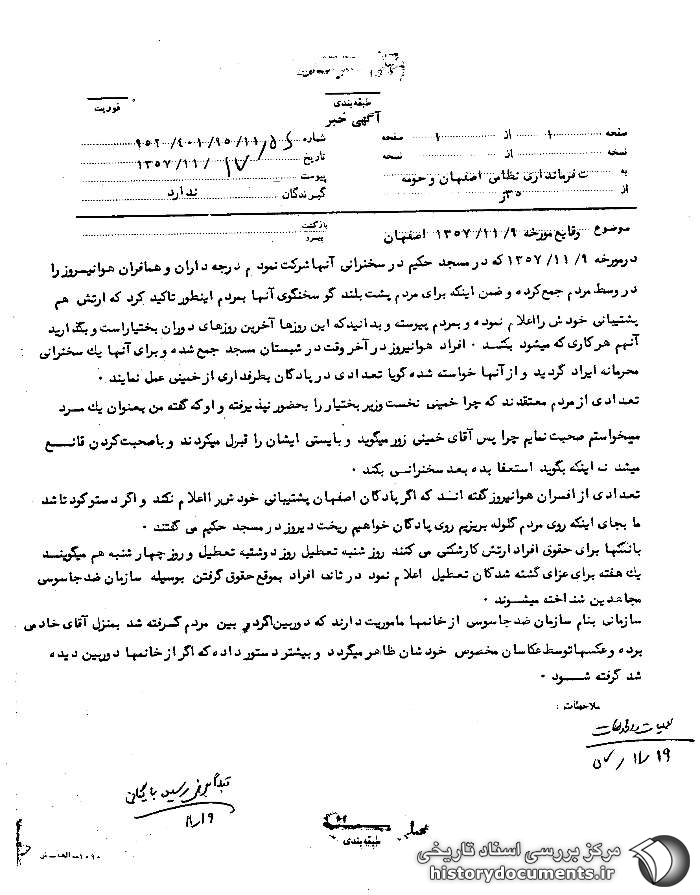 طبقه‌بندی
فوریت
آگهی خبر
صفحه ۱ از ۱ صفحه
شماره ۹۵۲۰/۴۰۱/۹۵/۱۱
نسخه از نسخه
تاریخ ۱۷ /۱۱/ ۱۳۵۷
به فرمانداری نظامی اصفهان و حومه
پیوست ندارد
از
گیرندگان
موضوع وقایع مورخه ۹/ ۱۱/ ۱۳۵۷ اصفهان
بازگشت
پیرو
در مورخه ۹/ ۱۱/ ۱۳۵۷ که در مسجد حکیم در سخنرانی آنها شرکت نمودم درجه داران و همافران هوانیروز را
در وسط مردم جمع کرده و ضمن اینکه برای مردم پشت بلند گو سخنگوی آنها بمردم اینطور تاکید کرد که ارتش هم
پشتیبانی خودش را اعلام نموده و بمردم پیوسته و بدانیدکه این روزها آخرین روزهای دوران بختیار است و بگذارید
آنهم هرکاری که میشود بکند ۰ افراد هوانیروز در آخر وقت در شبستان مسجد جمع شده و برای آنها یك سخنرانی
محرمانه ایراد گردید و از آنها خواسته شده گویا تعدادی در پادگان بطرفداری از خمینی عمل نمایند ۰
تعدادی از مردم معتقدند که چرا خمینی نخست وزیر بختیار را بحضور نپذیرفته و اوکه گفته من بعنوان یك مرد
میخواستم صحبت نمایم چرا پس آقای خمینی زور میگوید و بایستی ایشان را قبول میکردند و با صحبت کردن قانع
میشد نه اینکه بگوید استعفا بده بعد سخنرانی بکند ۰
تعدادی از افسران هوانیروز گفته اند که اگر پادگان اصفهان پشتیبانی خودش را اعلام نکند و اگر دستو کودتا شد
ما بجای اینکه روی مردم گلوله بریزیم روی پادگان خواهیم ریخت دیروز در مسجد حکیم می گفتند ۰
بانکها برای حقوق افراد ارتش کارشکنی می کنند روز شنبه تعطیل روز دوشنبه تعطیل و روز چهار شنبه هم میگویند
یك هفته برای عزای کشته شدگان تعطیل اعلام نمود در ثانی افراد بموقع حقوق گرفتن بوسیله سازمان ضد جاسوسی
مجاهدین شناخته میشوند ۰
سازمانی بنام سازمان ضد جاسوسی از خانمها ماموریت دارند که دوربین اگر در بین مردم گرفته شد بمنزل آقای خادمی
برده و عکسها توسط عکاسان مخصوص خودشان ظاهر میگردد و بیشتر دستور داده که اگر از خانمها دوربین دیده
شد گرفته شود ۰
ملاحظات :
۱۹ /۱۱/ ۵۷
۱۱/۱۹
طبقه‌بندی
مرکز بررسی اسناد تاریخی
historydocuments.ir